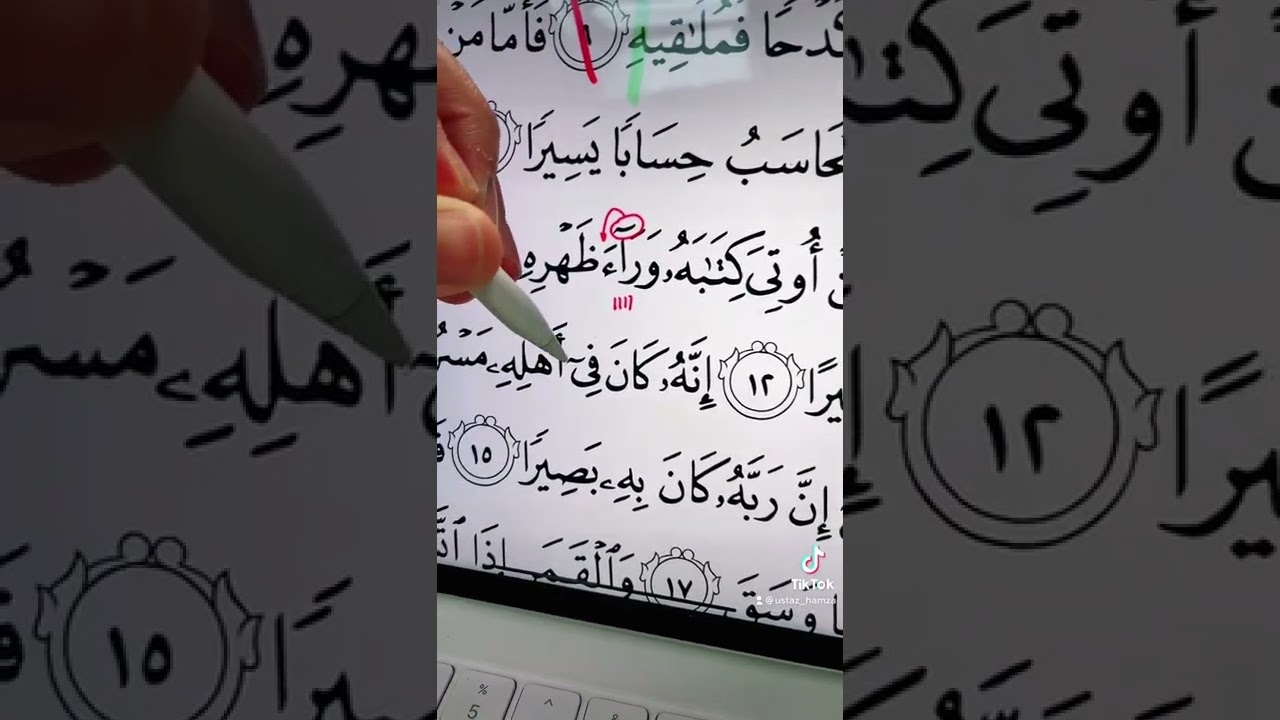 كَدْحًا فَمُلَٰقِيهِ ٦ فَأَمَّا مَنْ
حِسَابًا يَسِيرًا
أُوتِىَ كِتَٰبَهُۥ وَرَآءَ ظَهْرِهِ
١٢ إِنَّهُۥ كَانَ فِىٓ أَهْلِهِۦ
إِنَّ رَبَّهُۥ كَانَ بِهِۦ بَصِيرًا ١٥
وَسَقَ ١٧ وَٱلْقَمَرِ إِذَا
TikTok
@ustaz_hamza
% ^
5